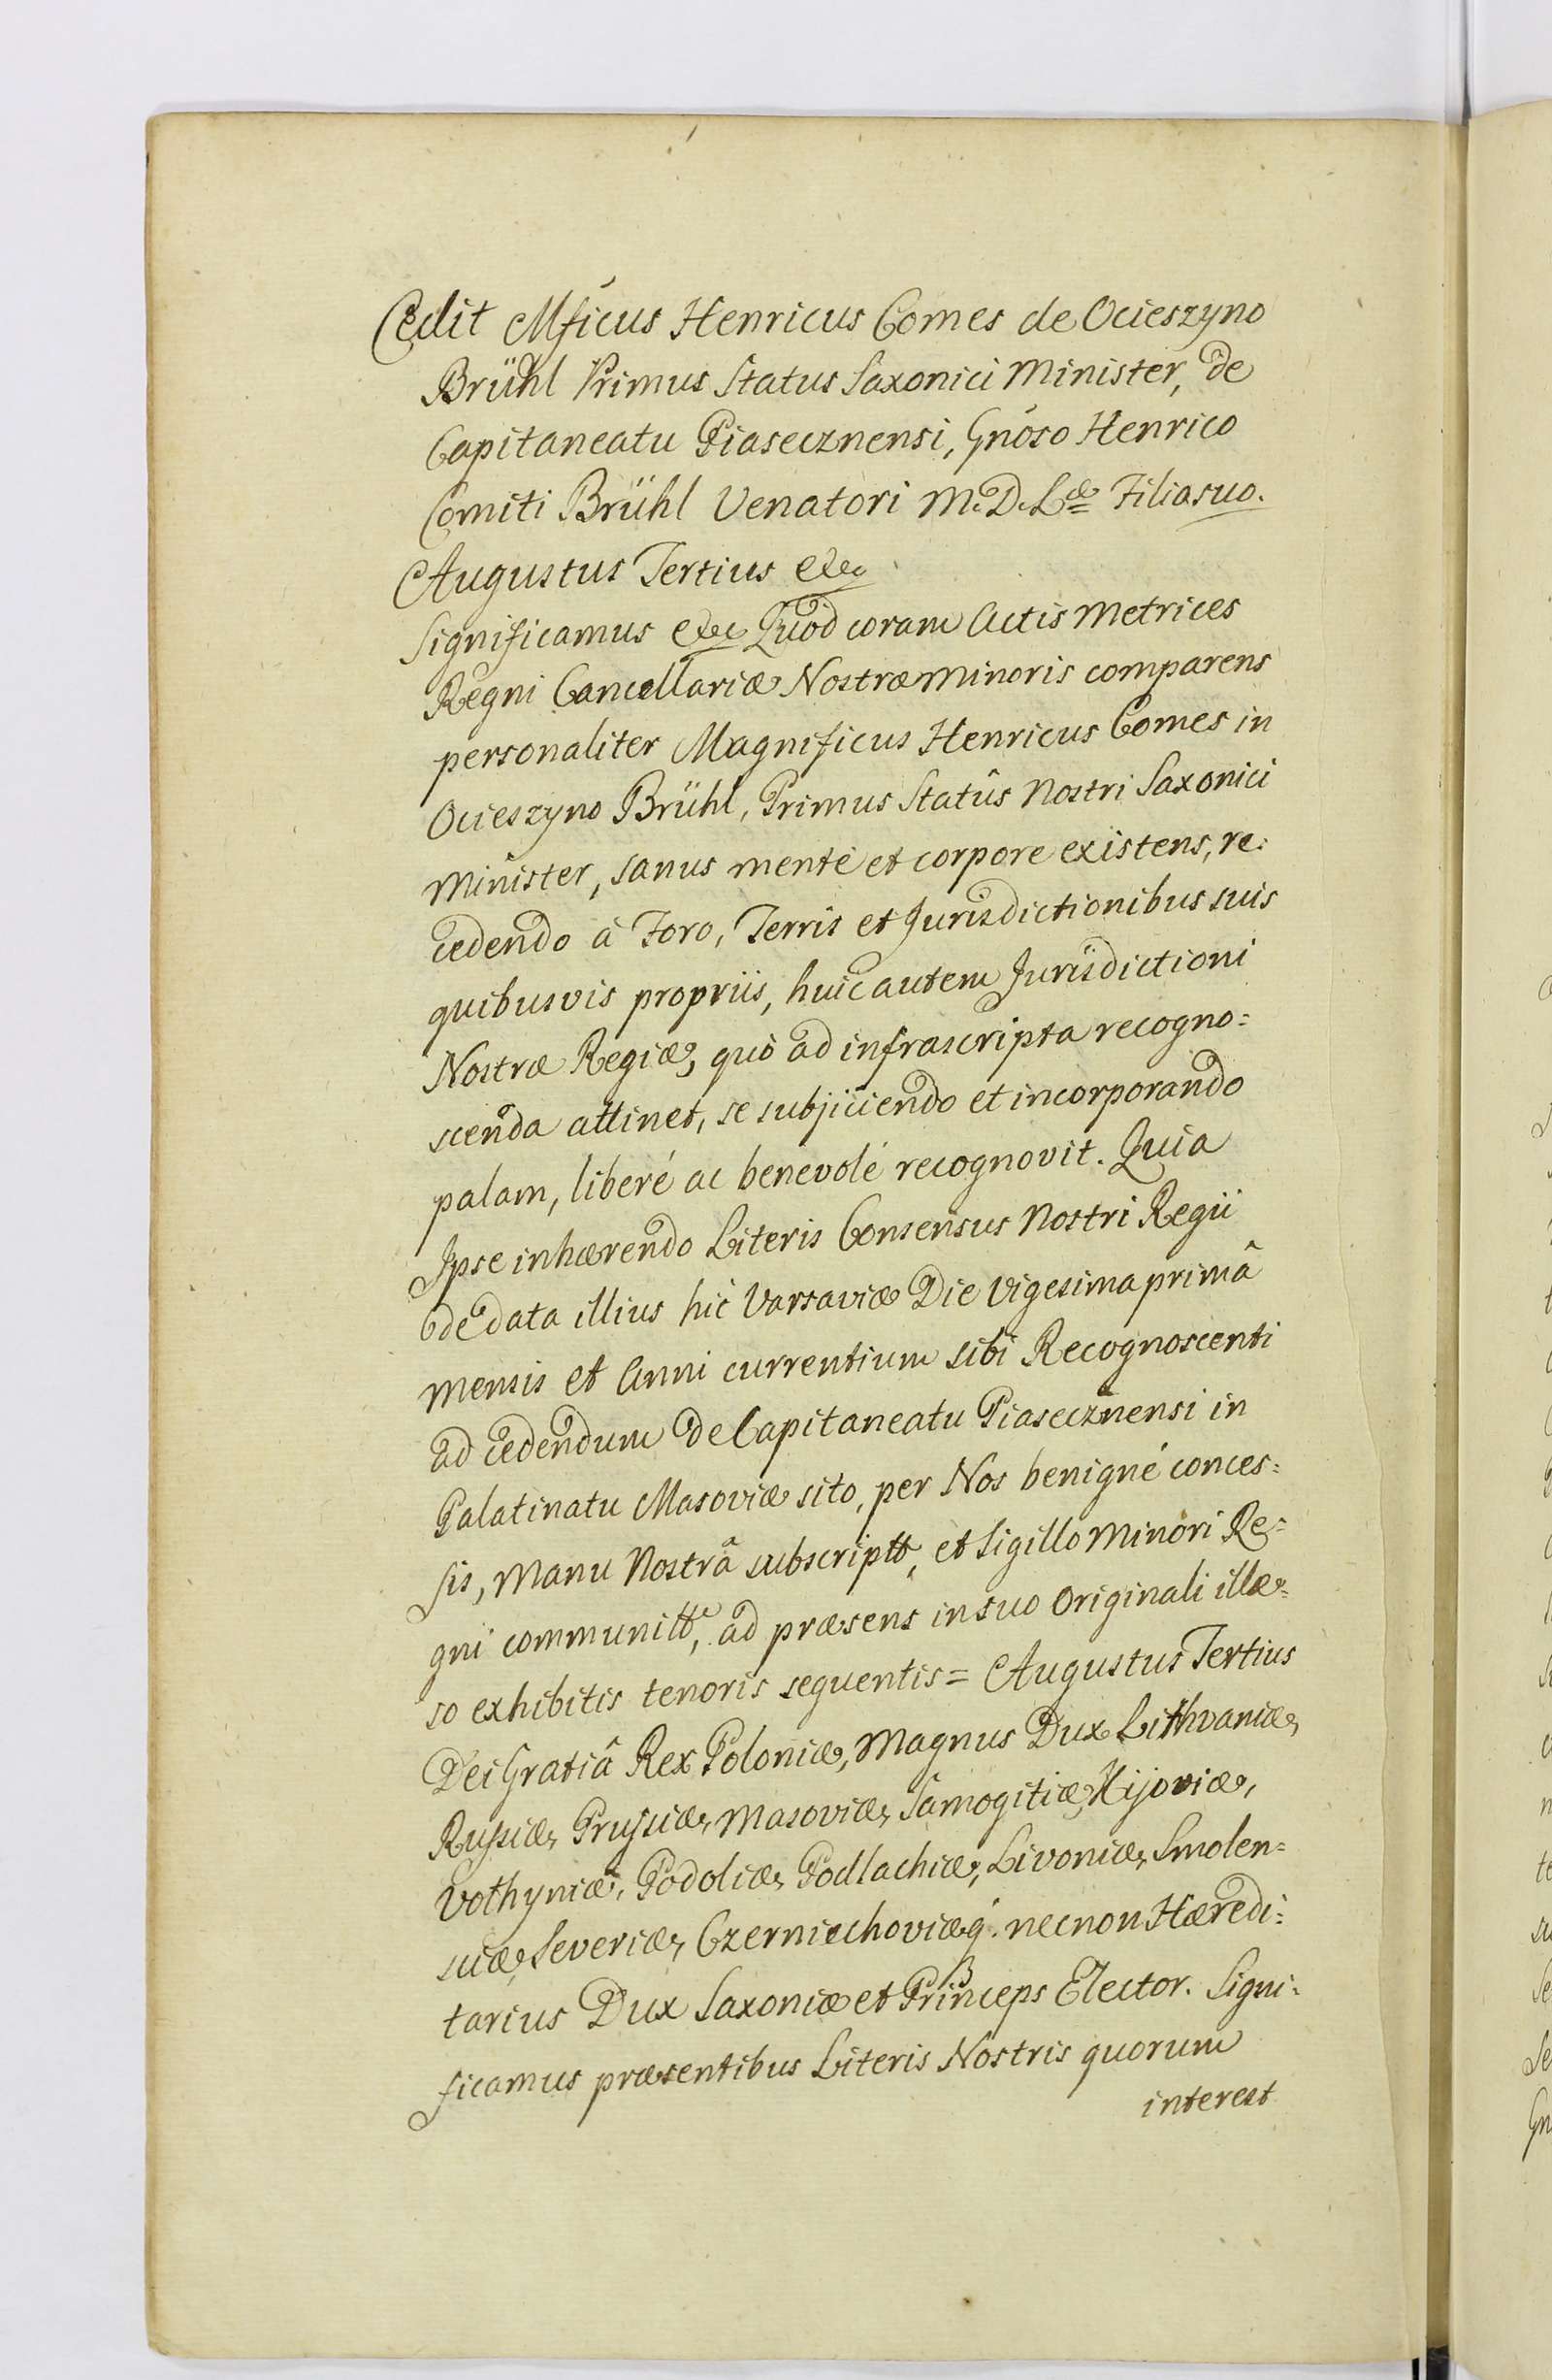 Cedit Mficus Henricus Comes de Ocieszyno
Brühl Primus Status Saxonici Minister, de
Capitaneatu Piasecznensi, Gnóso Henrico
Comiti Brühl Venatori M. D. L. Filio suo.
Augustus Tertius &c
Significamus &c Quod coram Actis Metrices
Regni Cancellariæ Nostræ minoris comparens
personaliter Magnificus Henricus Comes in
Ocieszyno Brühl, Primus Statûs Nostri Saxonici
Minister, sanus mente et corpore existens, re:
cedendo à Foro, Terris et Jurisdictionibus suis
quibusvis propriis, huic autem Jurisdictioni
Nostræ Regiæ, quò ad infrascripta recogno=
scenda attinet, se subjiciendo et incorporando
palam, liberé ac benevolé recognovit. Quia
Ipse inhærendo Literis Consensus Nostri Regii
de data illius hic Varsaviæ Die Vigesima primâ
Mensis et Anni currentium sibi Recognoscenti
ad cedendum de Capitaneatu Piasecznensi in
Palatinatu Masoviæ sito, per Nos benigné conces:
sis, Manu Nostrâ subscriptt, et Sigillo Minori Re=
gni communitt, ad præsens in suo Originali illæ=
so exhibitis tenoris sequentis = Augustus Tertius
Dei Gratiâ Rex Poloniæ, Magnus Dux Lithvaniæ,
Russiæ, Prussiæ, Masoviæ, Samogitiæ, Kijoviæ,
Volhyniæ, Podoliæ, Podlachiæ, Livoniæ, Smolen=
sciæ, Severiæ, Czerniechoviæq. necnon Hæredi:
tarius Dux Saxoniæ et Princeps Elector. Signi:
ficamus præsentibus Literis Nostris quorum
interest